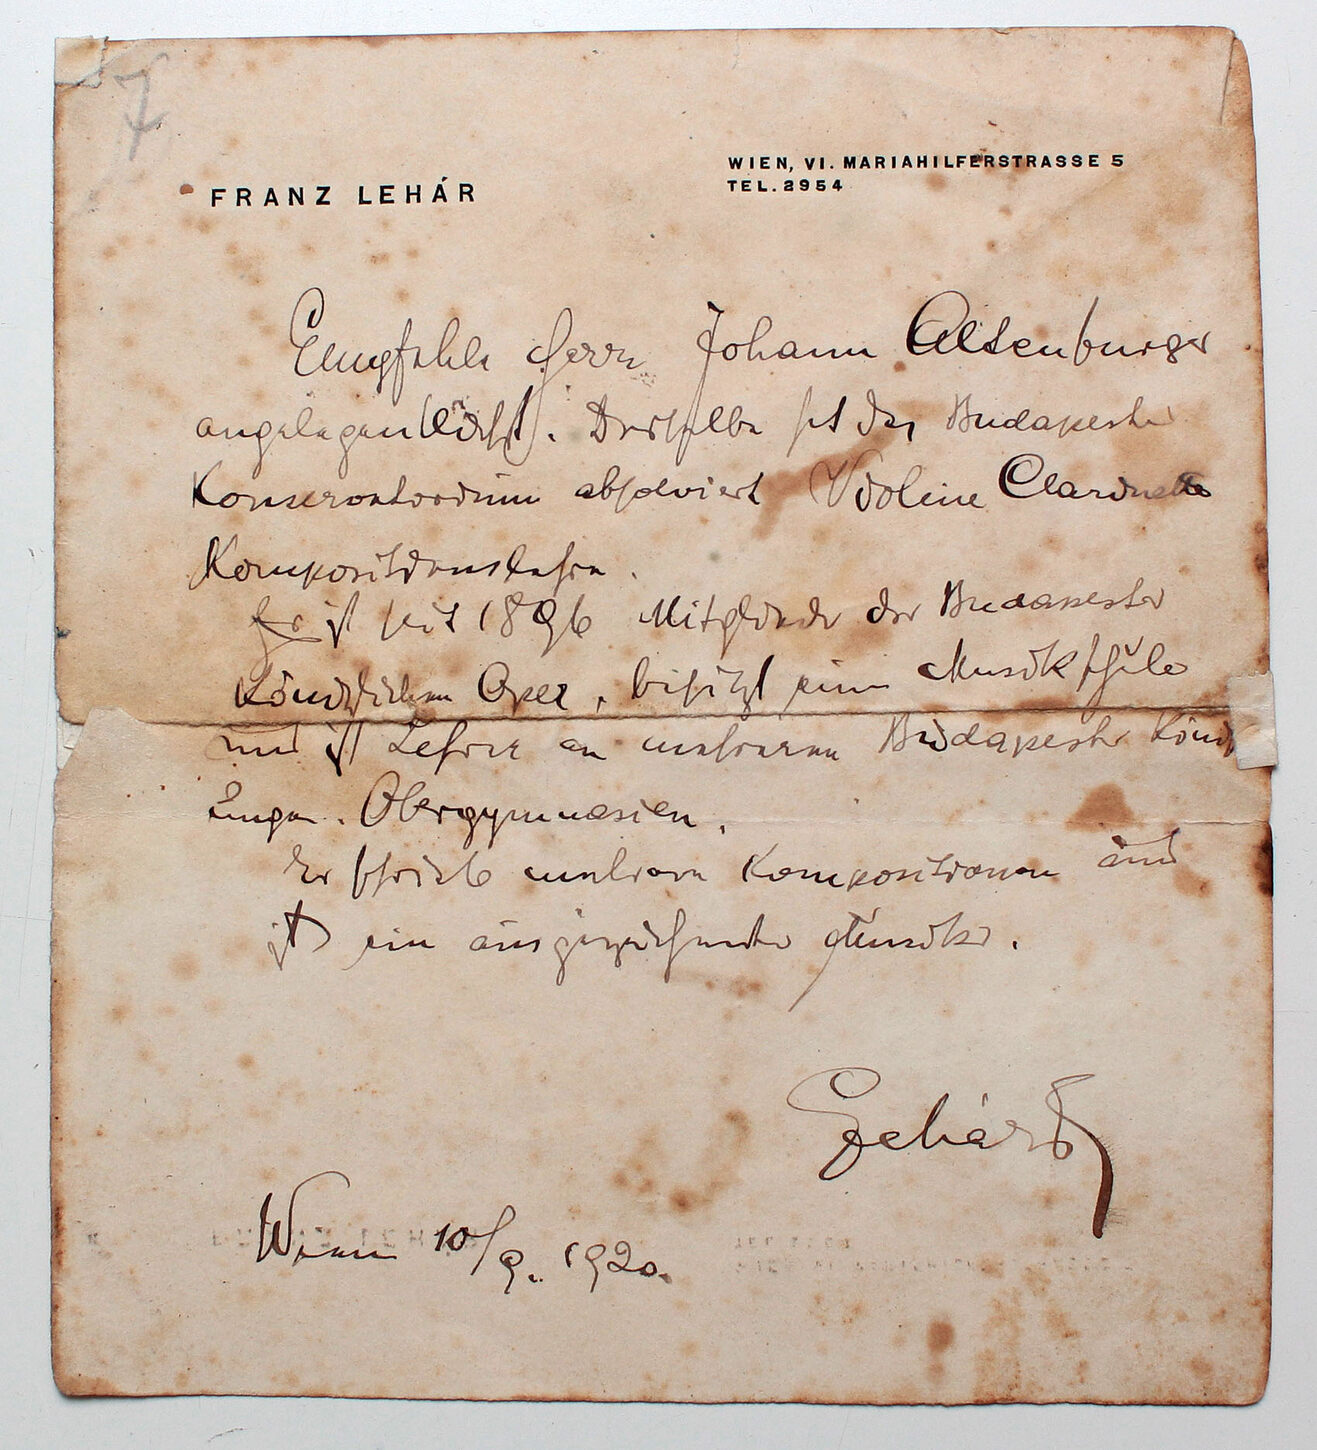 7
FRANZ LEHÁR
WIEN, VI. MARIAHILFERSTRASSE 5
TEL. 2954
Empfehle Herrn Johann Altenburger
angelegentlichst. Derselbe hat das Budapester
Konservatorium absolviert Violine Clarinette
Kompositionslehre.
Er ist seit 1896 Mitglied der Budapester
königlichen Oper, besitzt eine Musikschule
und ist Lehrer an mehreren Budapester königl
ungar. Obergymnasien.
Er schrieb mehrere Kompositionen und
ist ein ausgezeichneter Musiker.
Lehár
Wien 10/9. 1920.